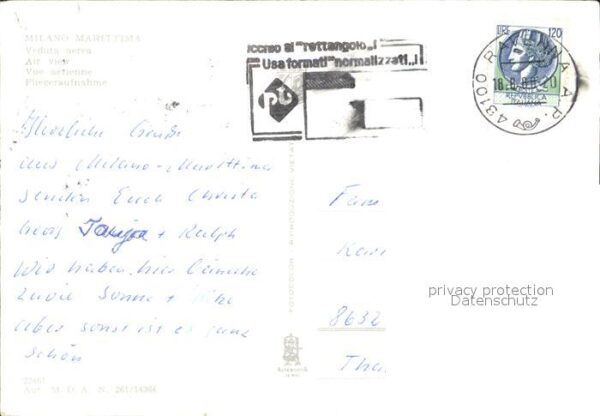 MILANO MARITTIMA
Veduta aerea
Air view
Vue aérienne
Fliegeraufnahme
occhio al "rettangolo„!
Usa formati "normalizzati„!
pt
LIRE 120
48100 RAVENNA A.P.
Herzliche Grüße
aus Milano-Marittima
senden Euch Christa
Tanja + Ralph
Wir haben hier
zuviel Sonne + Hitze
aber sonst ist es ganz
schön
Fam
8632
Tha
privacy protection
Datenschutz
FOTOCOLOR - RIPRODUZIONE VIETATA
22461
Aut. M. D. A. N. 261/14304